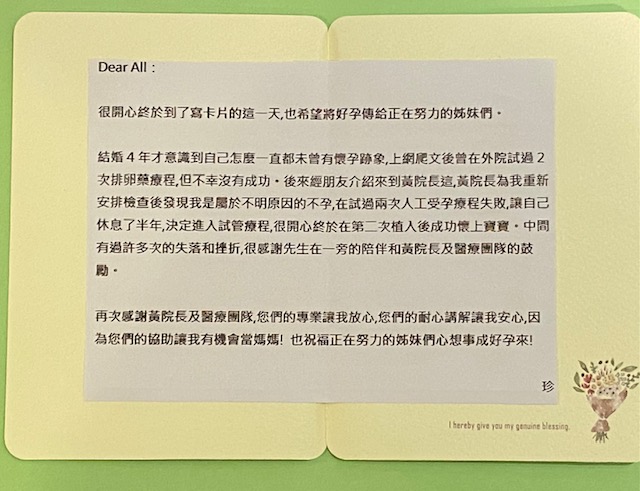 Dear All：
很開心終於到了寫卡片的這一天,也希望將好孕傳給正在努力的姊妹們。
結婚 4 年才意識到自己怎麼一直都未曾有懷孕跡象,上網爬文後曾在外院試過 2
次排卵藥療程,但不幸沒有成功。後來經朋友介紹來到黃院長這,黃院長為我重新
安排檢查後發現我是屬於不明原因的不孕,在試過兩次人工受孕療程失敗,讓自己
休息了半年,決定進入試管療程,很開心終於在第二次植入後成功懷上寶寶。中間
有過許多次的失落和挫折,很感謝先生在一旁的陪伴和黃院長及醫療團隊的鼓
勵。
再次感謝黃院長及醫療團隊,您們的專業讓我放心,您們的耐心講解讓我安心,因
為您們的協助讓我有機會當媽媽! 也祝福正在努力的姊妹們心想事成好孕來!
珍
I hereby give you my genuine blessing.